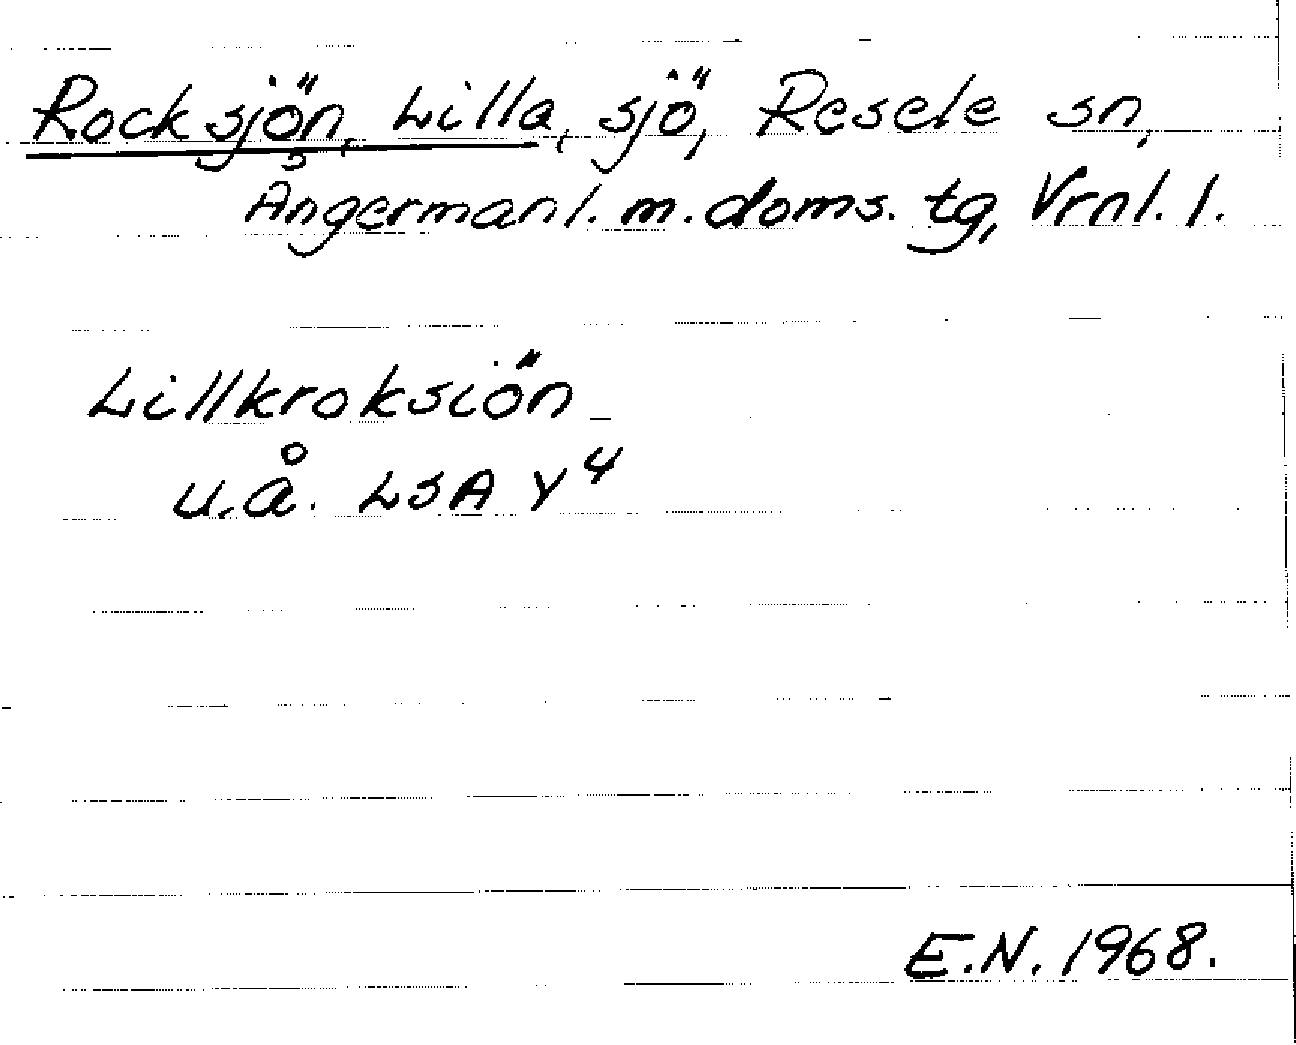 Rocksjön, Lilla, sjö, Resele sn,
Ångermanl. m. doms. tg, Vrnl. l.
Lillkroksiön
u.å. LSA Y4
E.N. 1968.